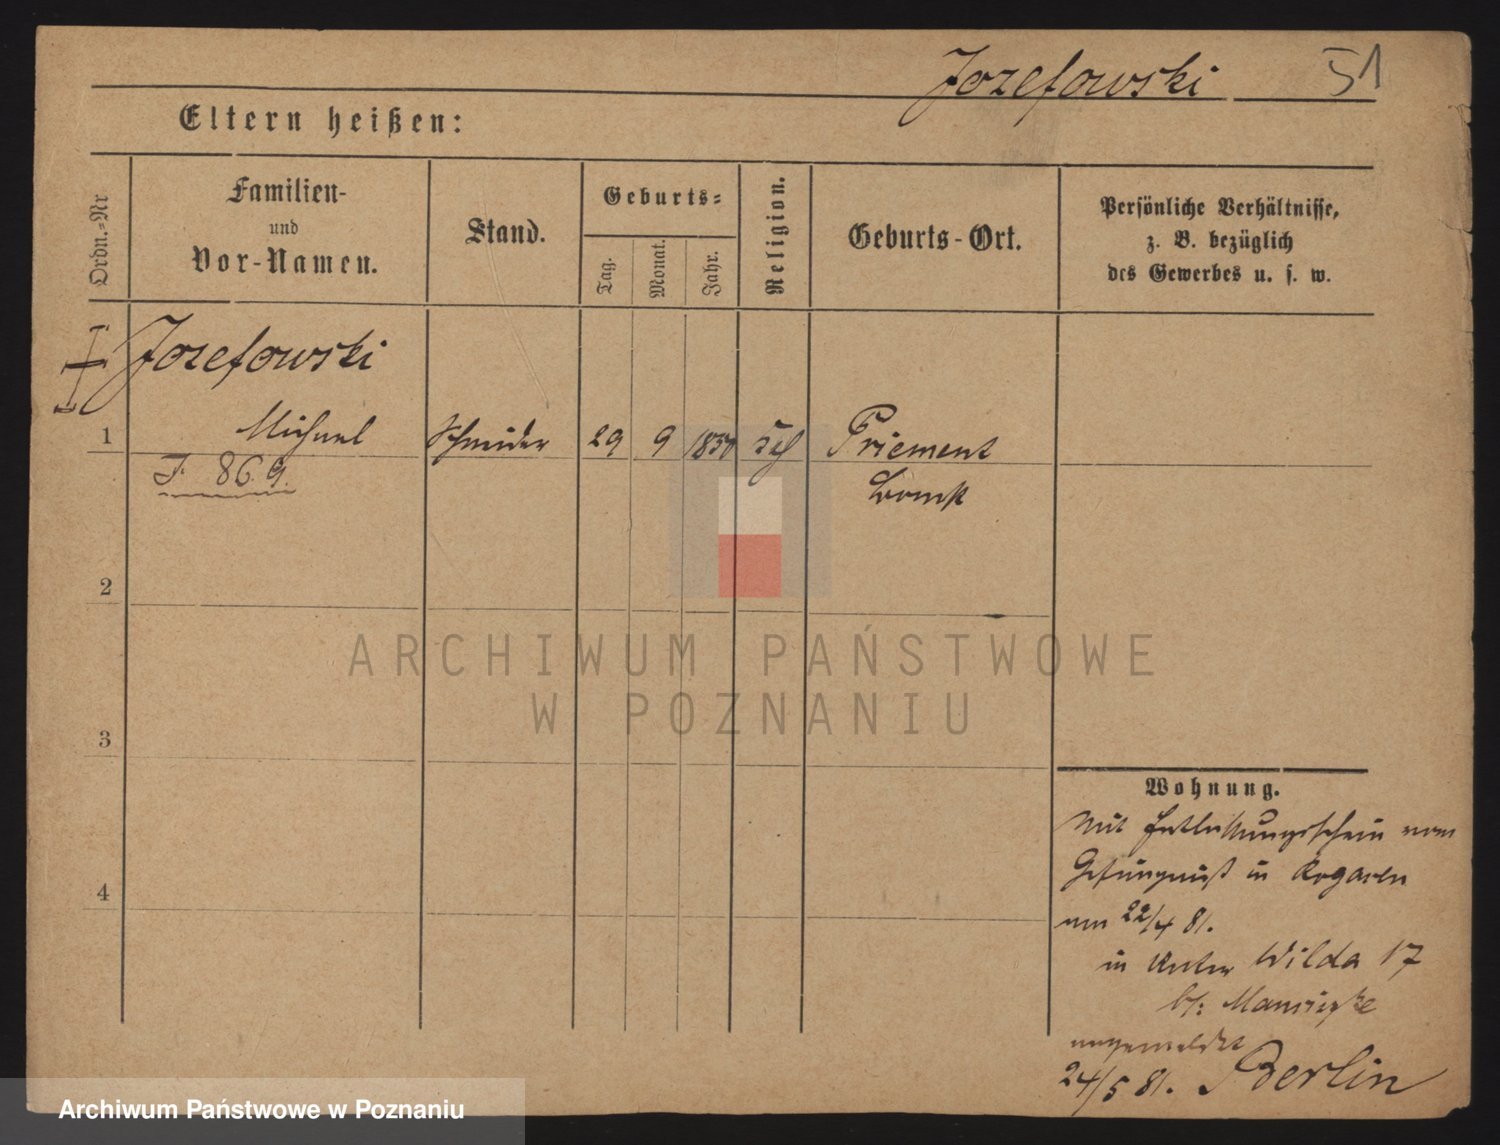 Jozefowski 51
Eltern heißen:
Ordn.-Nr
Familien-
und
Vor-Namen.
Stand.
Geburts-
Tag.
Monat.
Jahr.
Religion.
Geburts-Ort.
Persönliche Verhältnisse,
z. B. bezüglich
des Gewerbes u. s. w.
Jozefowski
1 Michael Schneider 29 9 1850 Priement
J. 869. Bomst
2
3
4
Wohnung.
Mit Entlassungsschein vom
Gefängniß in Rogasen
am 22/4 81.
in Unter Wilda 17
b/:
angemeldet
24/5 81. Berlin
ARCHIWUM PAŃSTWOWE
W POZNANIU
Archiwum Państwowe w Poznaniu